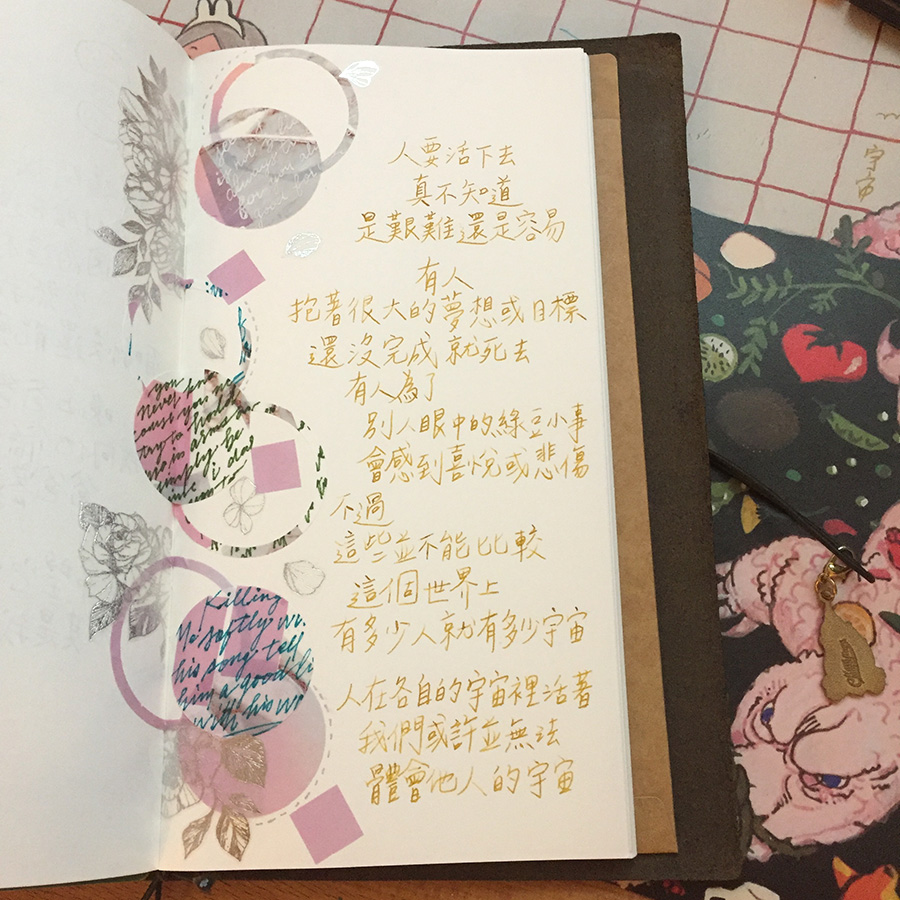 人要活下去
真不知道
是艱難還是容易
有人
抱著很大的夢想或目標
還沒完成就死去
有人為了
別人眼中的綠豆小事
會感到喜悅或悲傷
不過
這些並不能比較
這個世界上
有多少人就有多少宇宙
人在各自的宇宙裡活著
我們或許並無法
體會他人的宇宙
you
never
try to hold
arms
simply be
Killing
Me softly
his song tell
him a good
with his
宇宙